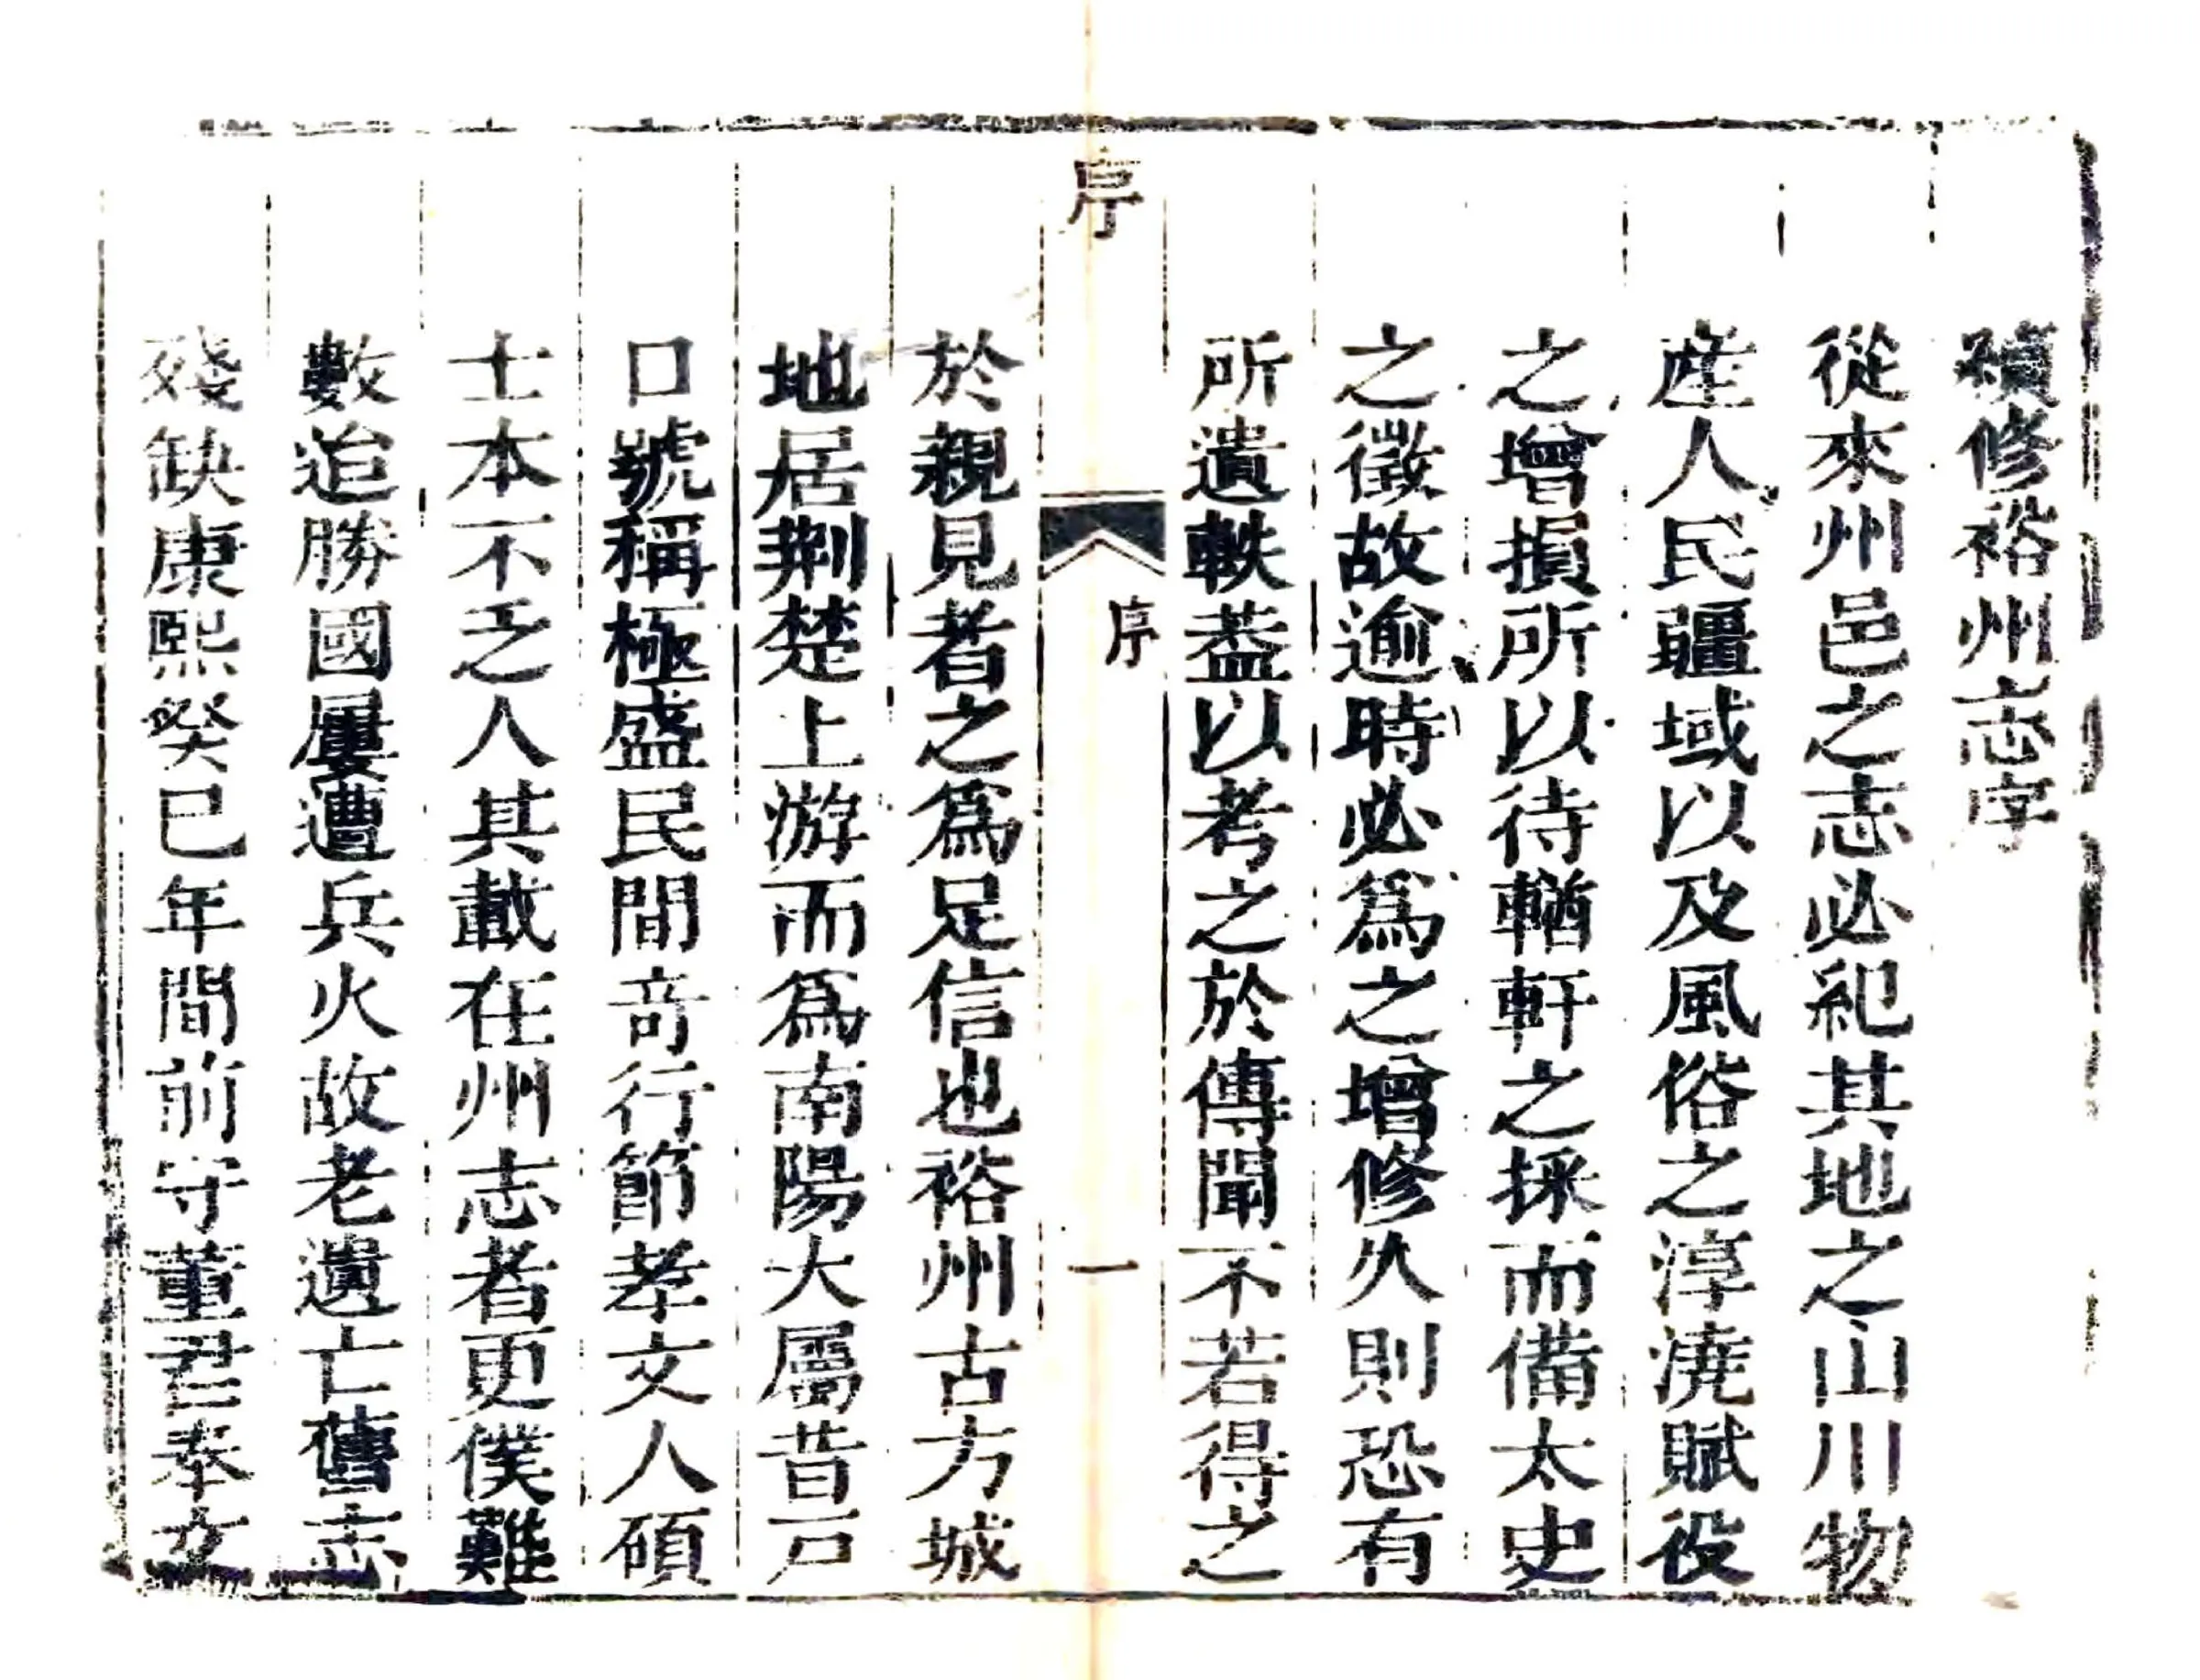 續修裕州志序
從來州邑之志必紀其地之山川物
產人民疆域以及風俗之淳澆賦役
之增損所以待輶軒之採而備太史
之徵故逾時必爲之增修久則恐有
所遺軼葢以考之於傳聞不若得之
序
序
一
於親見者之爲足信也裕州古方城
地居荆楚上游而爲南陽大屬昔戸
口號稱極盛民間竒行節孝文人碩
士本不乏人其載在州志者更僕難
數迨勝國屢遭兵火故老遺亡舊志
殘缺康熙癸巳年間前守董君奉文